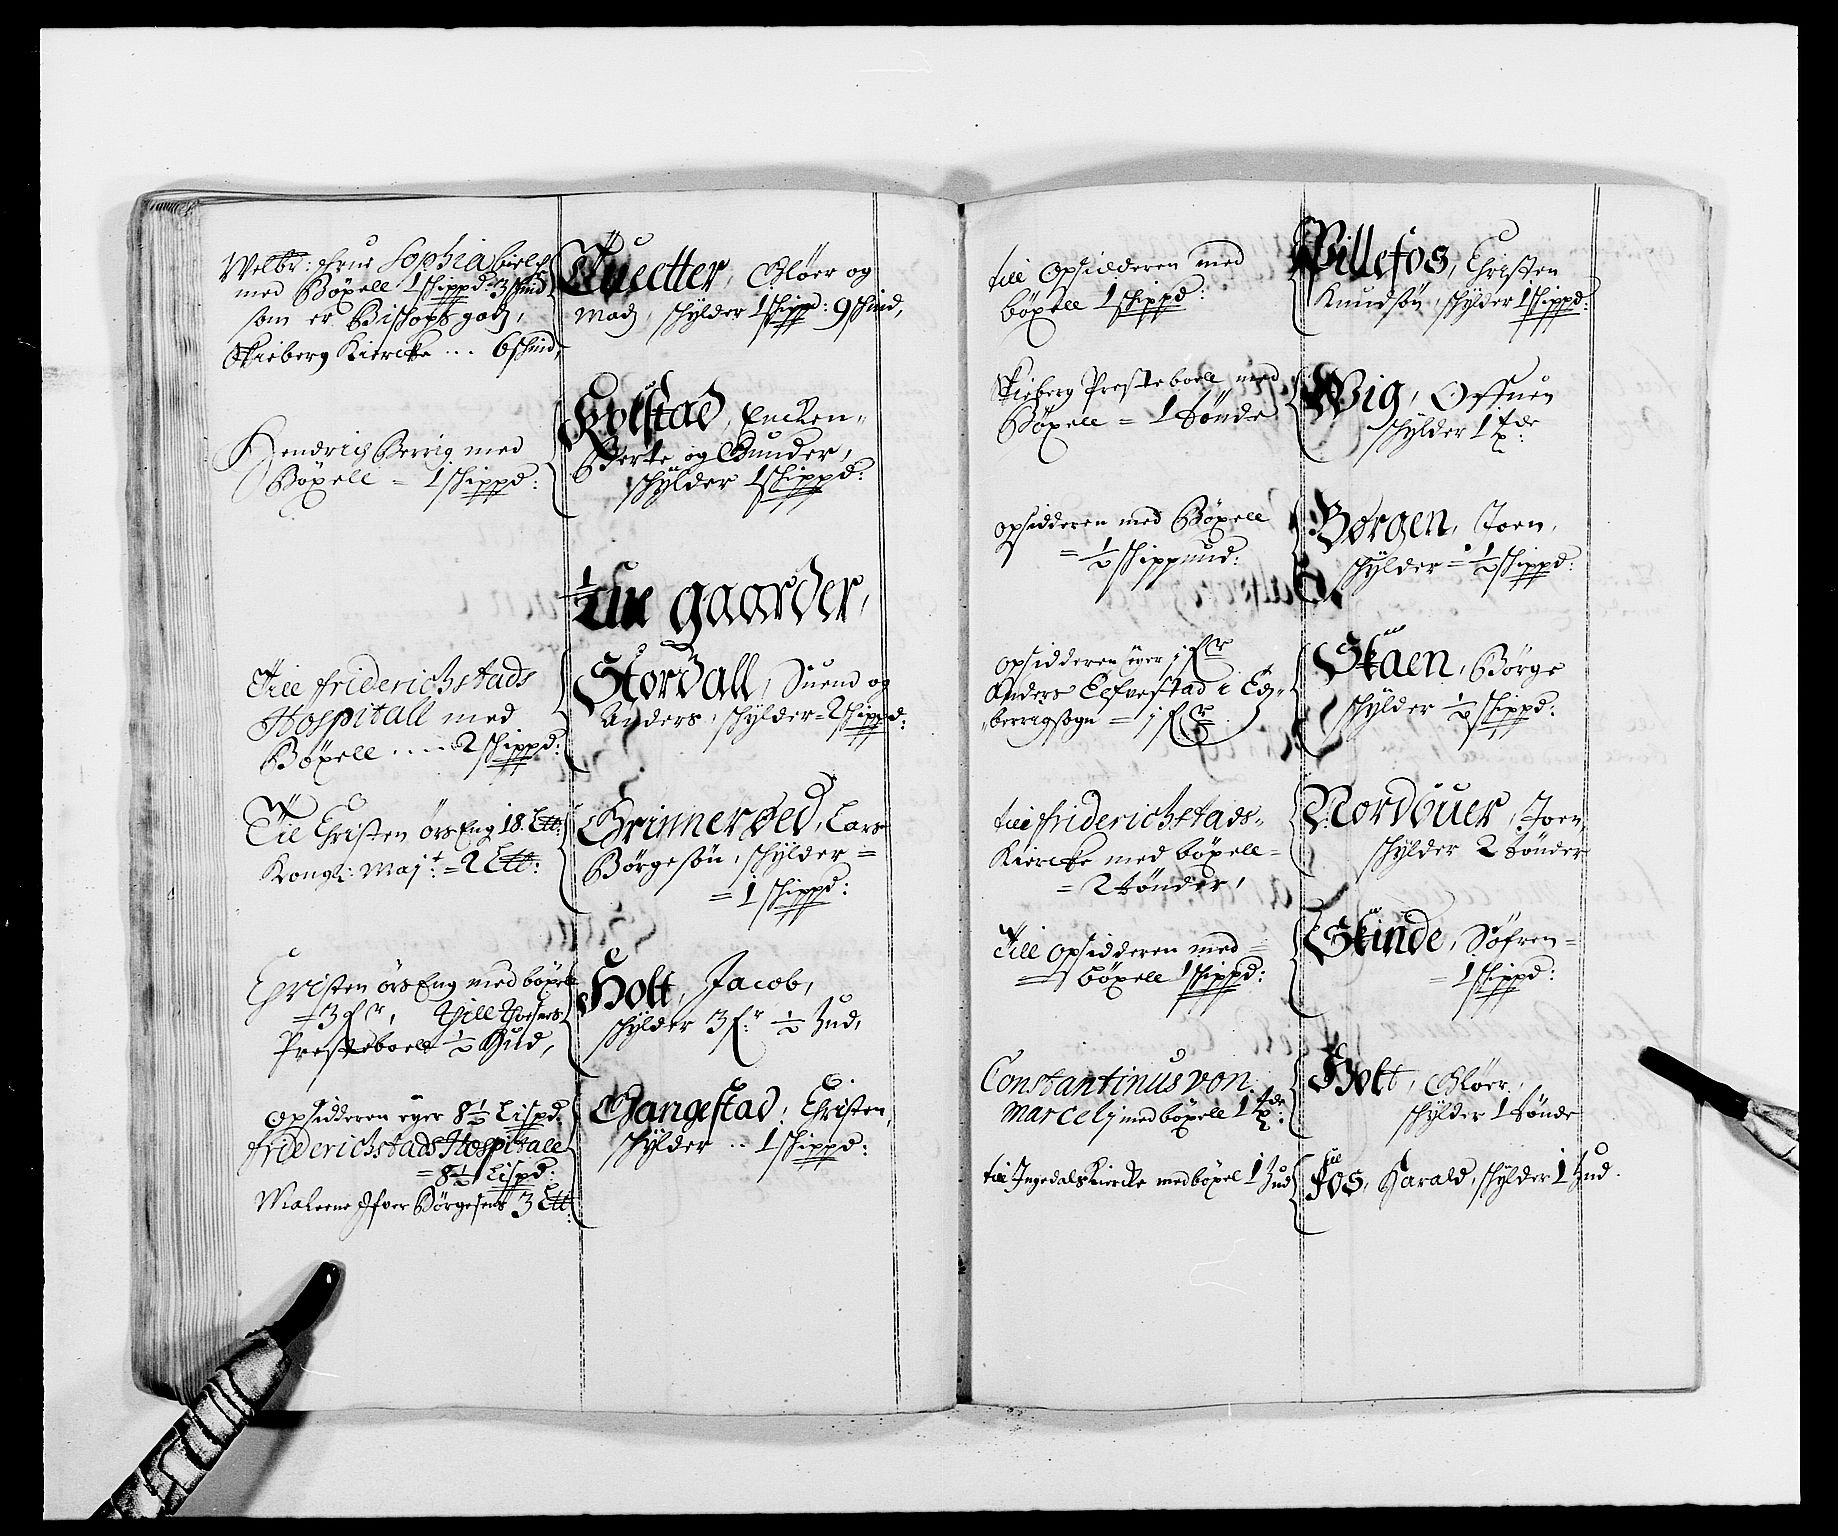 Welbr: frue Sophia Bielch
med Böxell 1 schippd: 3 schind
som er Bischops godz,
Skieberg Kiercke ... 6 schind,
Tuetter, Oløer og
Madz, schylder 1 schippd: 9 schind,
Hendrich Berrig med
Böxell = 1 schippd:
Kolstad, Encken
Berte og Gunder,
schylder 1 schippd:
1/2 gaarder,
Till friderichstads
Hospitall med
Böxell ... 2 schippd:
Stordall, Suend og
Anders, schylder = 2 schippd:
Til Christen örs Eng 18. Ltt:
Kongl: Maj:t = 2 Ltt:
Grinnerød, Lars
Börgesön, schylder =
= 1 schippd:
Christen örs Eng med böxell
= 3 fr, Till
Presteboell 1/2 Hud,
Holt, Jacob,
schylder 3 f:r 1/2 Hud,
Opsidderen eyer 8 1/2 Lispd:
friderichstads Hospitall
= 8 1/2 Lispd:
Maleene Ifver Börgesens 3 Ltt:
Gangestad, Christen,
schylder .. 1 schippd:
till Opsidderen med
böxell 1 schippd:
Villefos, Christen
Knudsön, schylder 1 schippd:
Skieberg Presteboell med
Böxell = 1 tönde
Wig, Offuen
schylder 1 tde
opsidderen med Böxell
= 1/2 schippund:
Borgen, Joen,
schylder = 1/2 schippd:
opsidderen eyer j fr
Anders Elfvestad i Ed,
berrigsogn = j fr
Skaen, Börge
schylder 1/2 schippd:
till friderichstads
Kiercke med böxell =
= 2 tönder,
Nordbuer, Joen,
schylder 2 tönder
Till opsidderen med =
böxell 1 schippd:
Skinde, Söfren =
= 1 schippd:
Constantinus von
Marcelj med böxell 1 tde
Holt, Oløer,
schylder 1 tönde
till Ingedals Kiercke med böxel 1 Hud
Lille
fos, Harald, schylder 1 Hud.